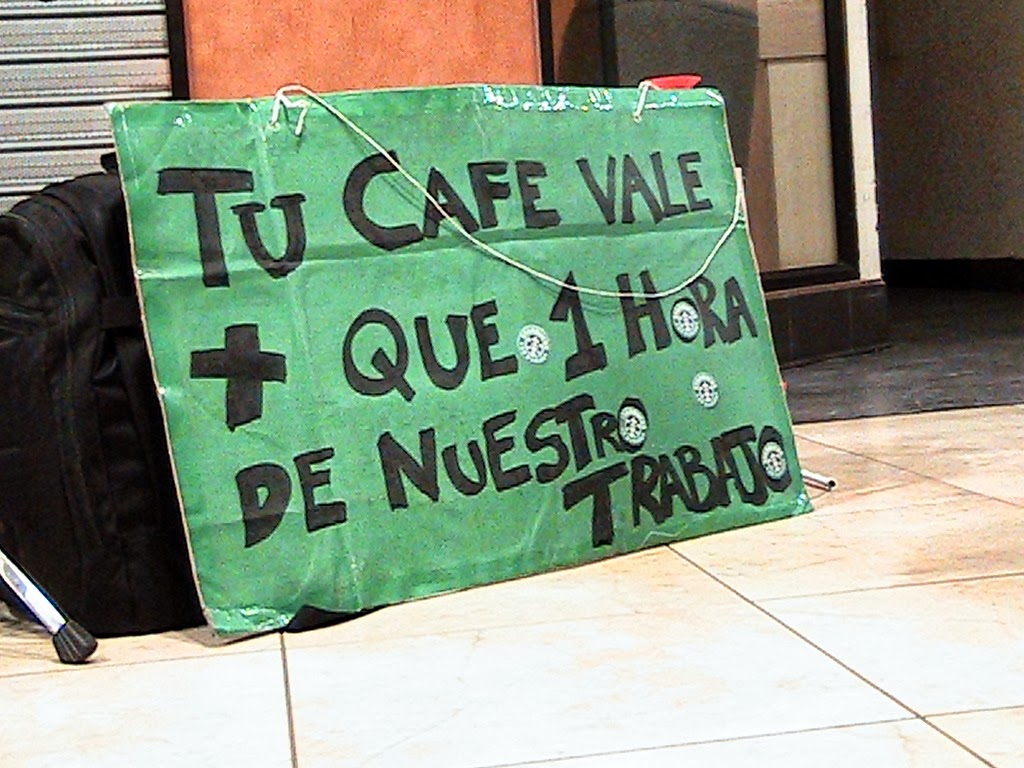 TU CAFE VALE
+ QUE 1 HORA
DE NUESTRO
TRABAJO